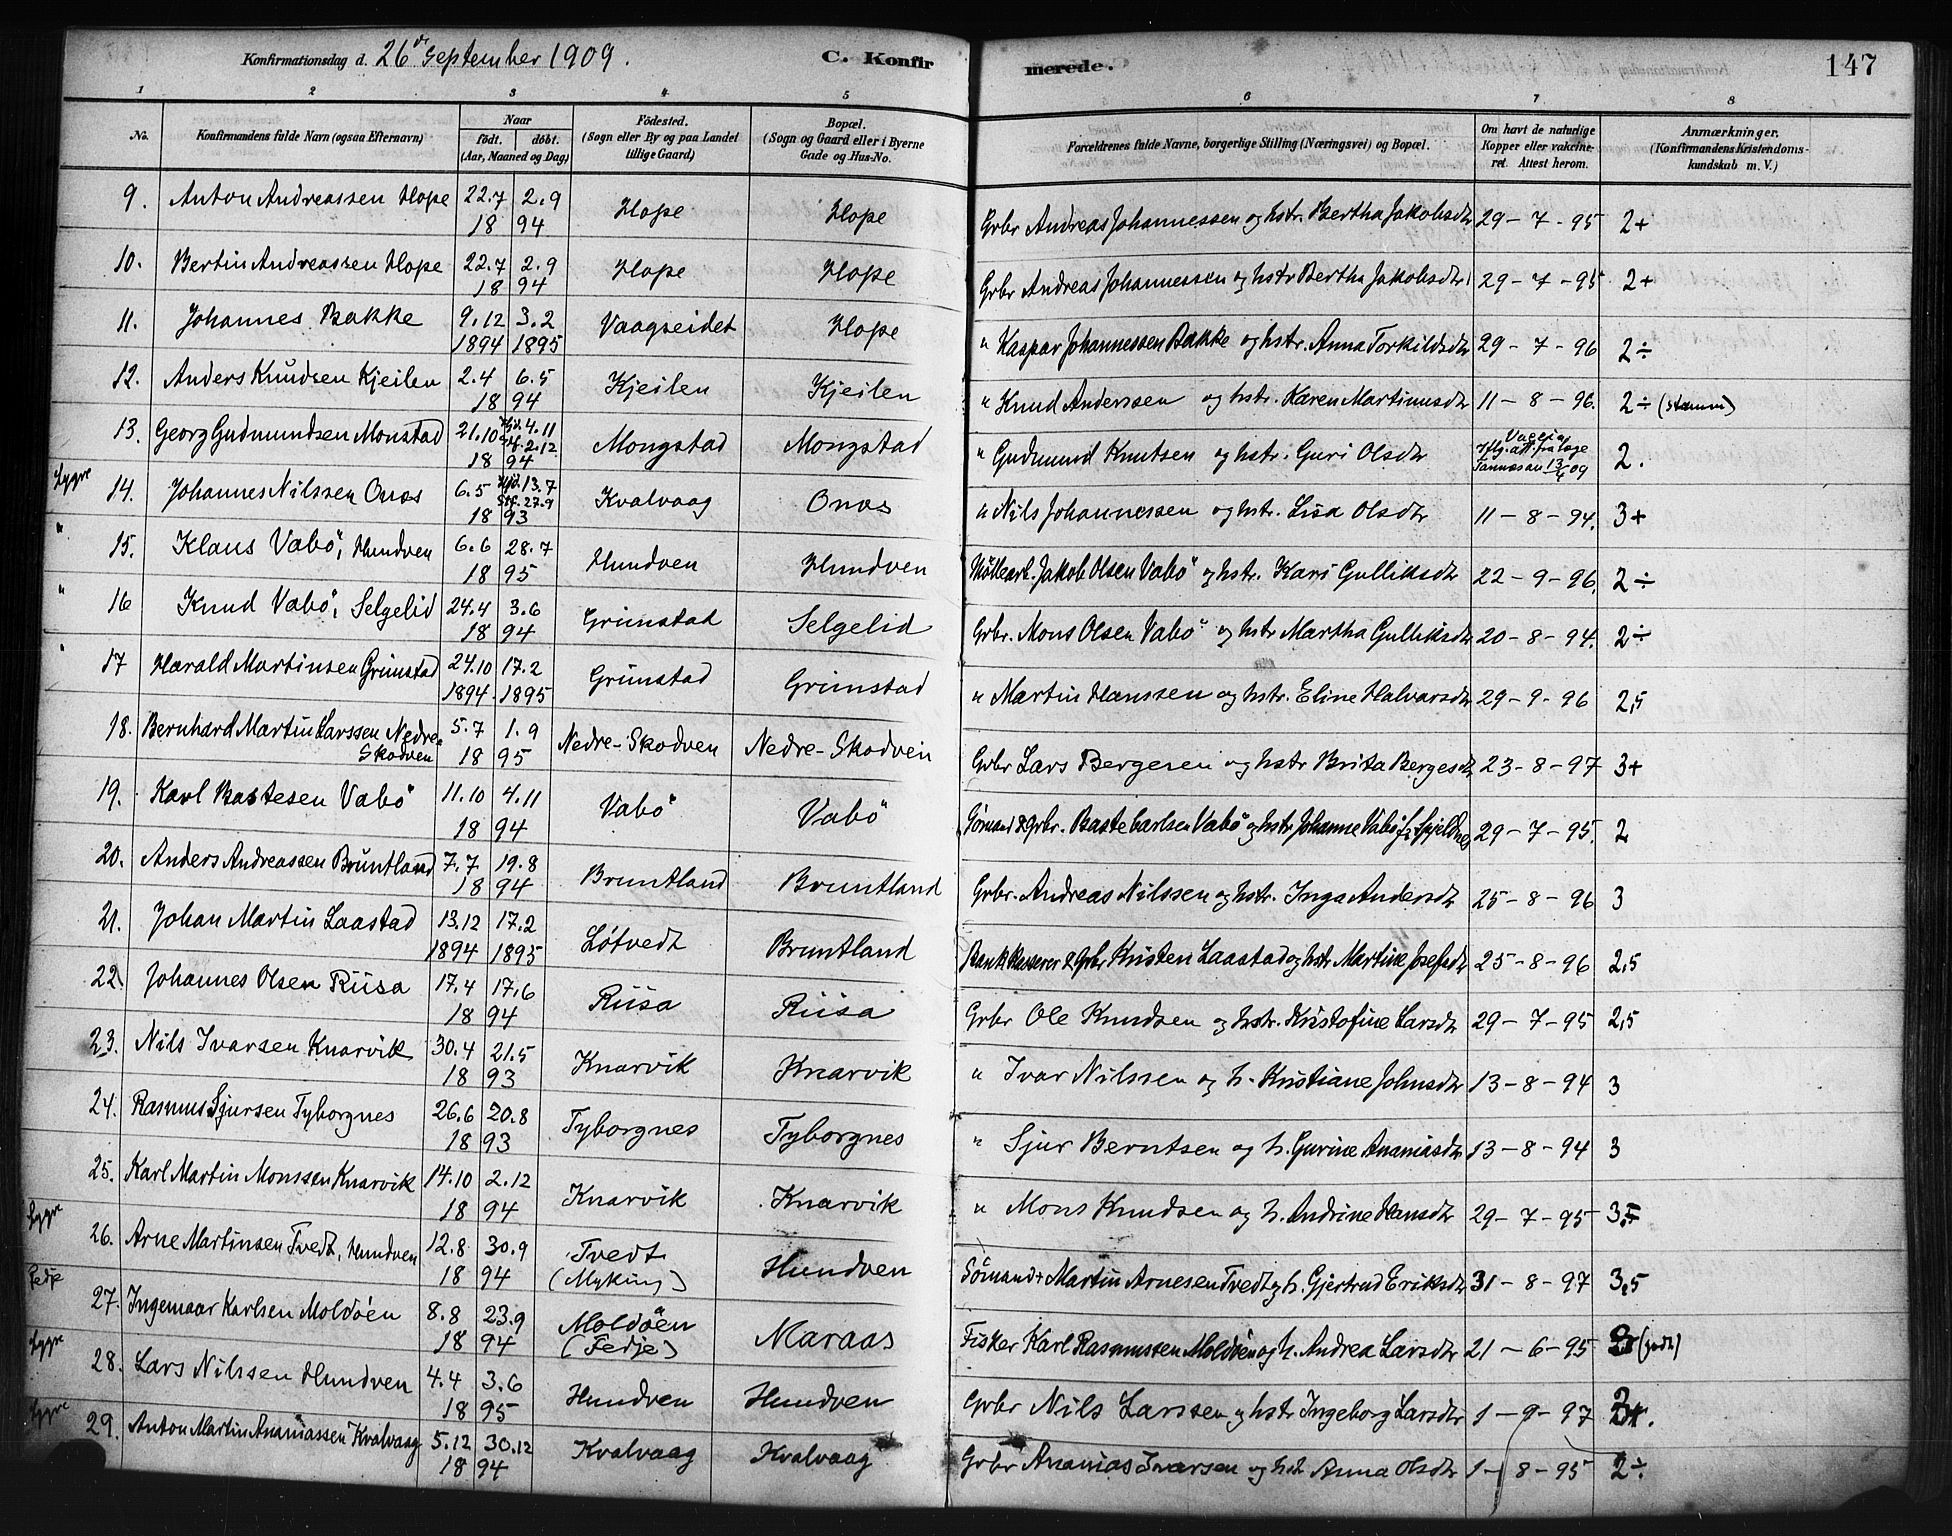 Konfirmationsdag d. 26de September 1909. C. Konfirmerede. 147
1 2 3 4 5 6 7 8
No. Konfirmandens fulde Navn (ogsaa Efternavn) Naar født. døbt. (Aar, Maaned og Dag) Fødested. (Sogn eller By og paa Landet tillige Gaard) Bopæl. (Sogn og Gaard eller i Byerne Gade og Hus-No. Forældrenes fulde Navne, borgerlige Stilling (Næringsvei) og Bopæl. Om havt de naturlige Kopper eller vakcineret. Attest herom. Anmærkninger. (Konfirmandens Kristendomskundskab m. V.)
9. Anton Andreassen Hope 22.7 2.9 18 94 Hope Hope Grbr Andreas Johannessen og hstr. Bertha Jakobsdtr 29-7-95 2+
10. Bertin Andreassen Hope 22.7 2.9 18 94 Hope Hope Grbr Andreas Johannessen og hstr Bertha Jakobsdtr 29-7-95 2+
11. Johannes Bakke 9.12 3.2 1894 1895 Vaagseidet Hope " Kaspar Johannessen Bakke og hstr. Anna Torkildsdtr 29-7-96 2÷
12. Anders Knudsen Kjeilen 2.4 6.5 18 94 Kjeilen Kjeilen " Knud Anderssen og hstr. Karen Martinusdtr 11-8-96. 2÷ (stamm)
13. Georg Gudmundsen Monstad 21.10 Hjd. 4.11 Stf. 2.12 18 94 Mongstad Mongstad " Gudmund Knutsen og hstr. Guri Olsdtr 2.
Lygre 14. Johannes Nilssen Onæs 6.5 Hjd. 13.7 Stf. 27.9 18 93 Kvalvaag Onæs " Nils Johannessen og hstr. Lisa Olsdtr 11-8-94. 3+
" 15. Klaus Vabö, Hundven 6.6 28.7 18 95 Hundven Hundven Møllearb. Jakob Olsen Vabö og hstr. Kari Gulliksdtr 22-9-96. 2÷
" 16 Knud Vabö, Selgelid 24.4 3.6 18 94 Grimstad Selgelid Grbr. Mons Olsen Vabö og hstr Martha Gulliksdtr 20-8-94. 2÷
" 17 Harald Martinsen Grimstad 24.10 17.2 1894 1895 Grimstad Grimstad " Martin Hanssen og hstr. Eline Halvarsdtr 29-9-96 2,5
18. Bernhard Martin Larssen Nedre-Skodven 5.7 1.9 18 95 Nedre-Skodven Nedre-Skodvein Grbr Lars Bergesen og hstr Brita Bergesdtr 23-8-97 3+
19. Karl Bastesen Vabö 11.10 4.11 18 94 Vabö Vabö Sömand & Grbr. Baste Carlsen Vabö og hstr Johanne Vabö f. Spjeldnes 29-7-95. 2
20. Anders Andreassen Bruntland 7.7 19.8 18 94 Bruntland Bruntland Grbr. Andreas Nilssen og hstr. Inga Andersdtr 25-8-96 3
21. Johan Martin Laastad 13.12 17.2 1894 1895 Løtvedt Bruntland Bankkasserer & Grbr Kristen Laastad og hstr Martine Josefsdtr 25-8-96 2,5
22. Johannes Olsen Riisa 17.4 17.6 18 94 Riisa Riisa Grbr Ole Knudsen og hstr. Kristofine Larsdtr 29-7-95 2,5
23. Nils Ivarsen Knarvik 30.4 21.5 18 93 Knarvik Knarvik " Ivar Nilssen og h. Kristiane Johnsdtr 13-8-94 3
24. Rasmus Sjursen Tyborgnes 26.6 20.8 18 93 Tyborgnes Tyborgnes " Sjur Berntsen og h. Gurine Ananiasdtr 13-8-94 3
25. Karl Martin Monssen Knarvik 14.10 2.12 18 94 Knarvik Knarvik " Mons Knudsen og h. Andrine Hansdtr 29-7-95 3,5
Lygre 26. Arne Martinsen Tvedt, Hundven 12.8 30.9 18 94 Tvedt (Myking) Hundven Sömand Martin Arnesen Tvedt og h. Gjertrud Eriksdtr 31-8-97 3,5
Fedje 27. Ingemaar Karlsen Moldöen 8.8 23.9 18 94 Moldöen (Fedje) Maraas Fisker Karl Rasmussen Moldöen og h. Andrea Larsdtr 21-6-95 (godt)
Lygre 28. Lars Nilssen Hundven 4.4 3.6 18 95 Hundven Hundven Grbr Nils Larssen og hstr Ingeborg Larsdtr 1-9-97
Lygre 29. Anton Martin Ananiassen Kvalvaag 5.12 30.12 18 94 Kvalvaag Kvalvaag Grbr Ananias Ivarsen og hst Anna Olsdtr 1-8-95 2÷